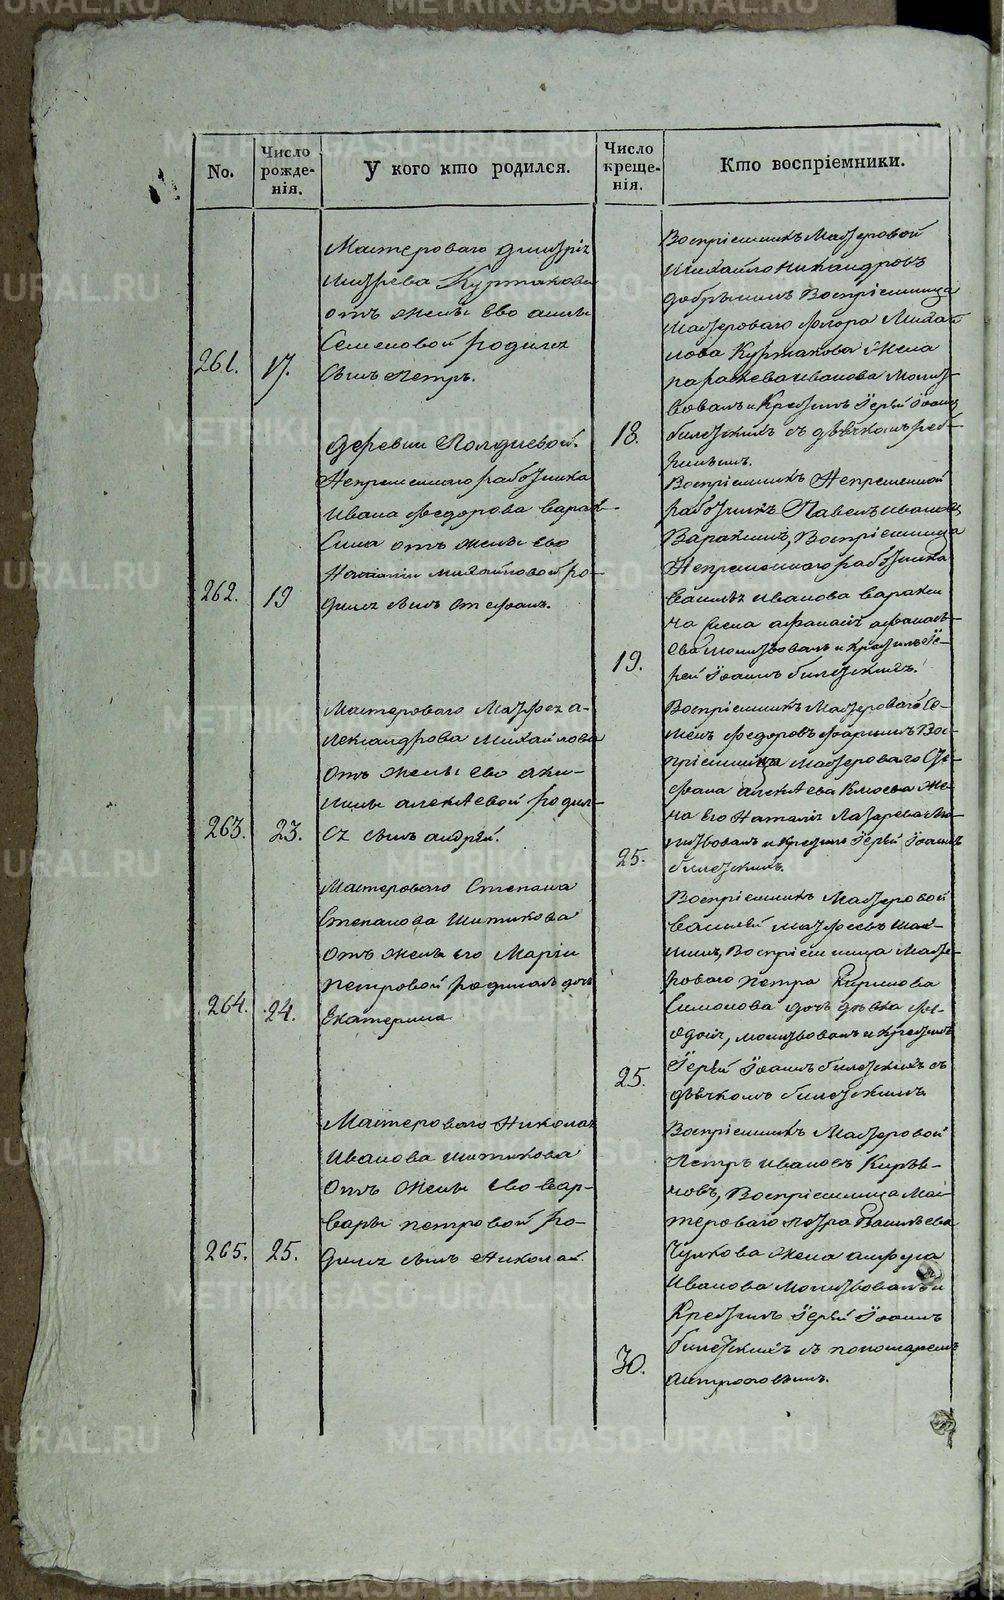 No.
Число рожде-нія.
У кого кто родился.
Число креще-нія.
Кто воспріемники.
261.
17.
Мастероваго Дмитрія
Андрѣева Куртакова
отъ жены Ево Анны
Семеновой родился
сынъ Петръ.
18.
Воспріемникъ Мастеровой
Михайло Никандровъ
Добрынинъ Воспріемница
Мастероваго Флора Михай
лова Куртакова жена
Параскева Иванова Молит-
вовалъ и Крестилъ Іерей Іоаннъ
съ дьячкомъ
262.
19
Деревни Полдневой.
Непременнаго работника
Ивана Федорова Барак-
сина отъ жены Ево
Наталіи Михайловой ро-
дился сынъ Стефанъ.
19.
Воспріемникъ Непременной
работникъ Павелъ Ивановъ
Воспріемница
Непременнаго работника
Василья Иванова
на жена Афанасія Афанась-
ева Молитвовалъ и Крестилъ Іе-
рей Іоаннъ
263.
23.
Мастероваго Матфея А-
лександрова Михайлова
отъ жены Ево Аки-
лины Алексѣевой родил-
ся сынъ Андрей.
25.
Воспріемникъ Мастероваго Се-
менъ Федоровъ Вос-
пріемница Мастероваго Сте-
фана Алексѣева Клюева Же-
на Его Наталія Лазарева Мо-
литвовалъ и Крестилъ Іерей Іоаннъ
264.
24.
Мастероваго Степана
Степанова Шитикова
отъ жены его Маріи
Петровой родилась дочь
Екатерина
25.
Воспріемникъ Мастеровой
Василей Матфеевъ
Воспріемница Масте-
роваго Петра Кирилова
Симонова дочь дѣвка Фе-
одосія, молитвовалъ и Крестилъ
Іерей Іоаннъ съ
дьячкомъ
265.
25.
Мастероваго Николая
Иванова Шитикова
отъ жены Ево Вар-
вары Петровой ро-
дился сынъ Николай.
30.
Воспріемникъ Мастеровой
Петръ Ивановъ
Воспріемница Мас-
тероваго Петра Васильева
Чулкова жена
Иванова Молитвовалъ и
Крестилъ Іерей Іоаннъ
съ пономаремъ
METRIKI.GASO-URAL.RU